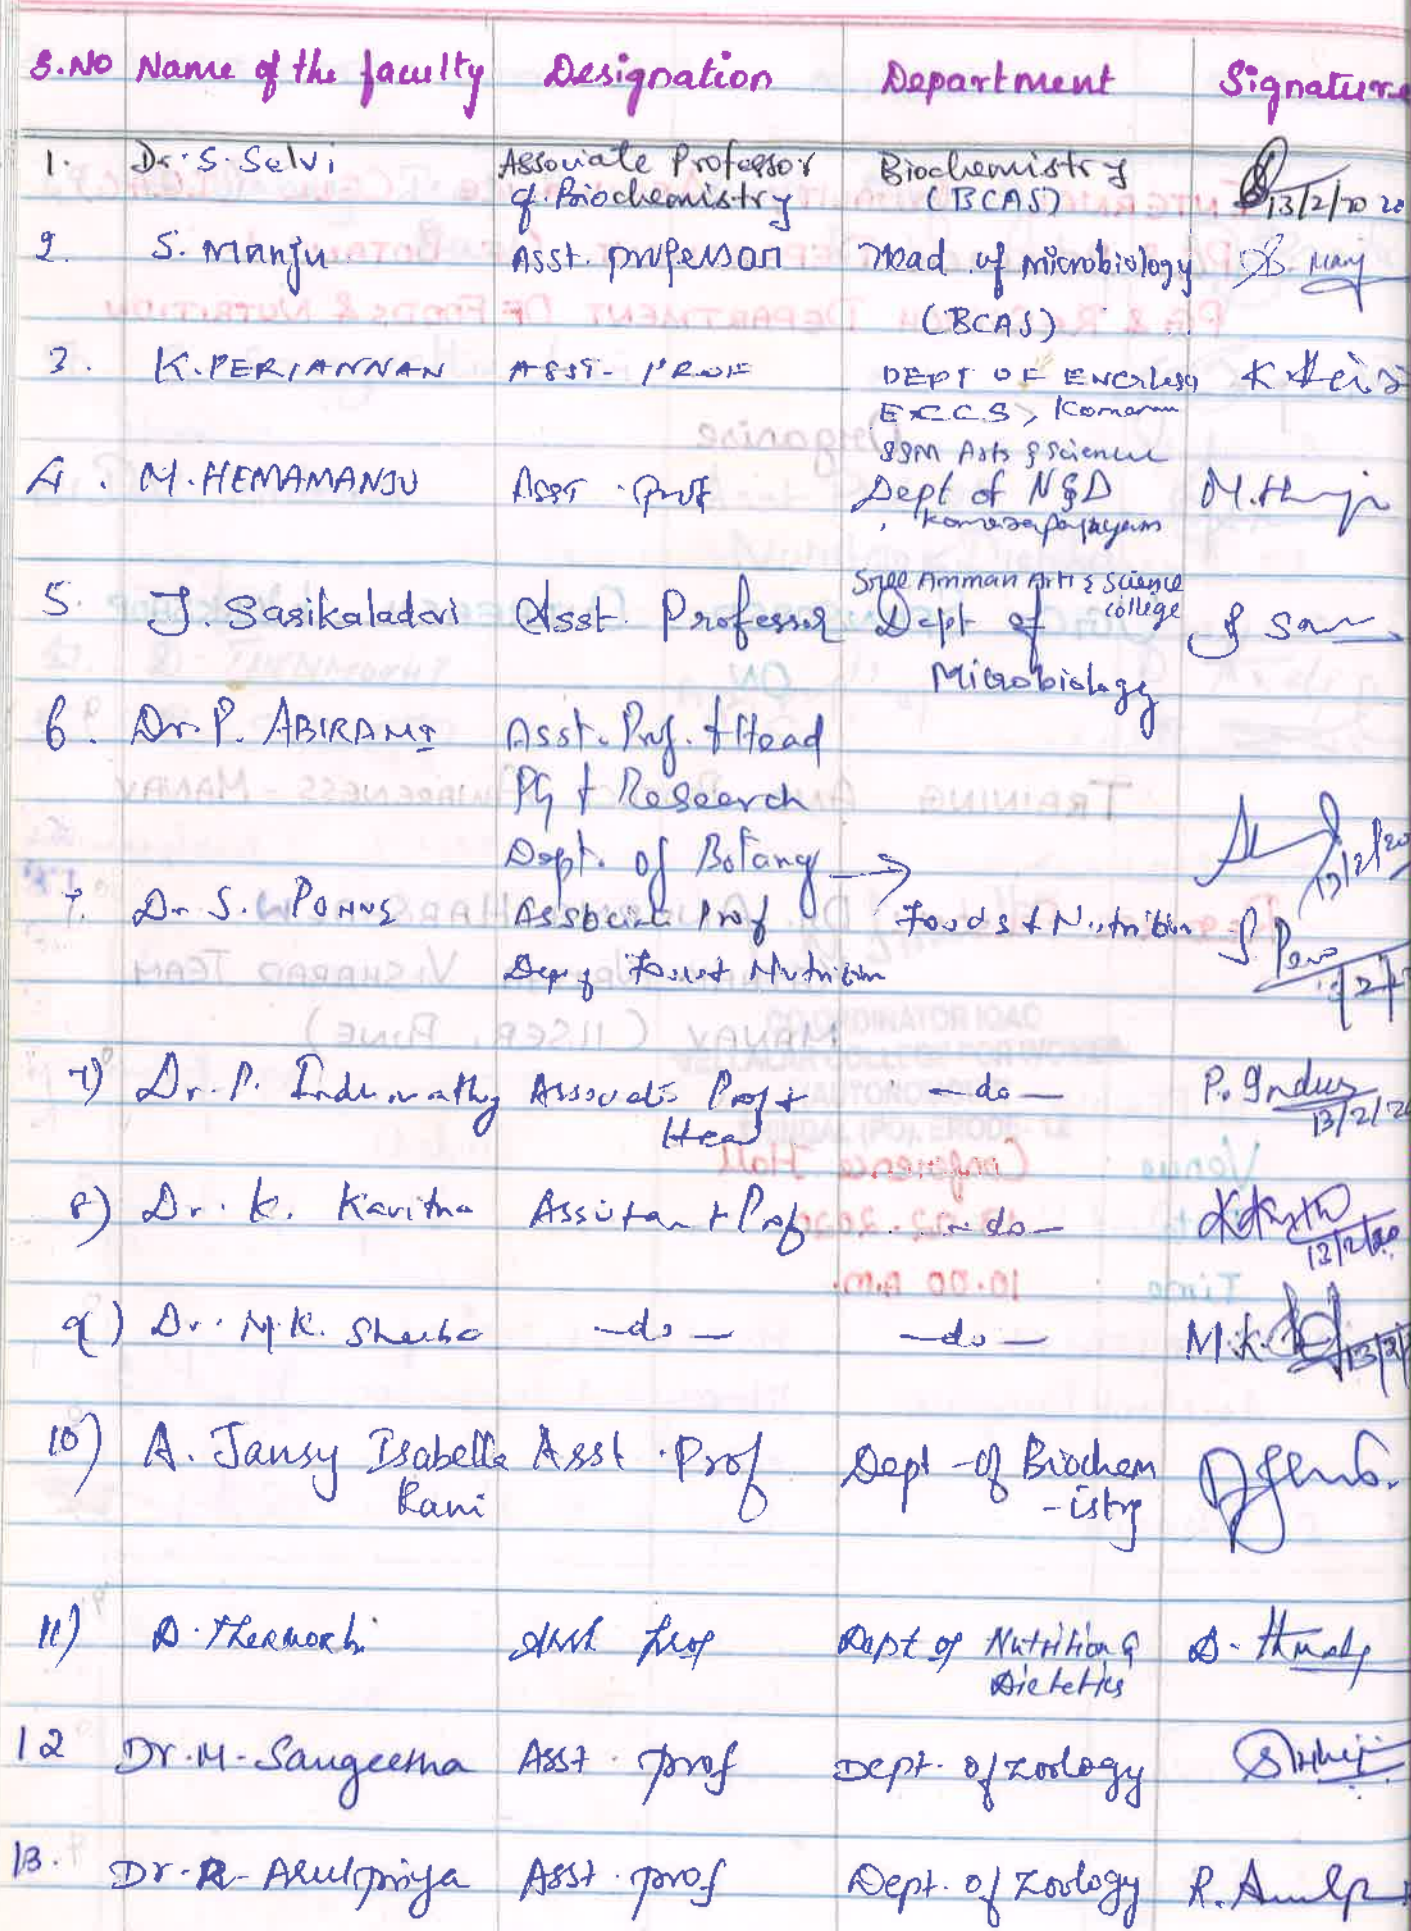 S.NO Name of the faculty Designation Department Signature
1. Dr. S. Selvi Associate Professor Biochemistry
of Biochemistry (BCAS) 13/2/2020
2. S. Manju Asst. professor Head of microbiology S. Manj
(BCAS)
3. K. PERIANNAN ASST- PROF DEPT OF English
EXCCS, Komaram
SSM Arts & Science
4. M. HEMAMANJU Asst. Prof Dept of N&D
Komarapalayam
Sree Amman Arts & Science
college
5. J. Sasikaladevi Asst. Professor Dept of
Microbiology
6. Dr. P. ABIRAMI Asst. Prof. & Head
PG & Research
Dept. of Botany → 13/2/20
7. Dr S. PONNS Associate Prof Foods & Nutrition
Dep of Food & Nutrition
7) Dr. P. Indumathy Associate Prof & -do- P. Indus
Head 13/2/20
8) Dr. K. Kavitha Assistant Prof -do-
13/2/20
9) Dr. M.K. Sheeba -do- -do- M.K. 13/2/
10) A. Jansy Isabella Asst. Prof Dept of Biochem
Rani -istry
11) D. Thenmozhi Asst Prof Dept of Nutrition &
Dietetics
12 Dr. M. Sangeetha Asst. prof Dept. of Zoology
13. Dr. R. Arulpriya Asst. prof Dept. of Zoology R. Arulp